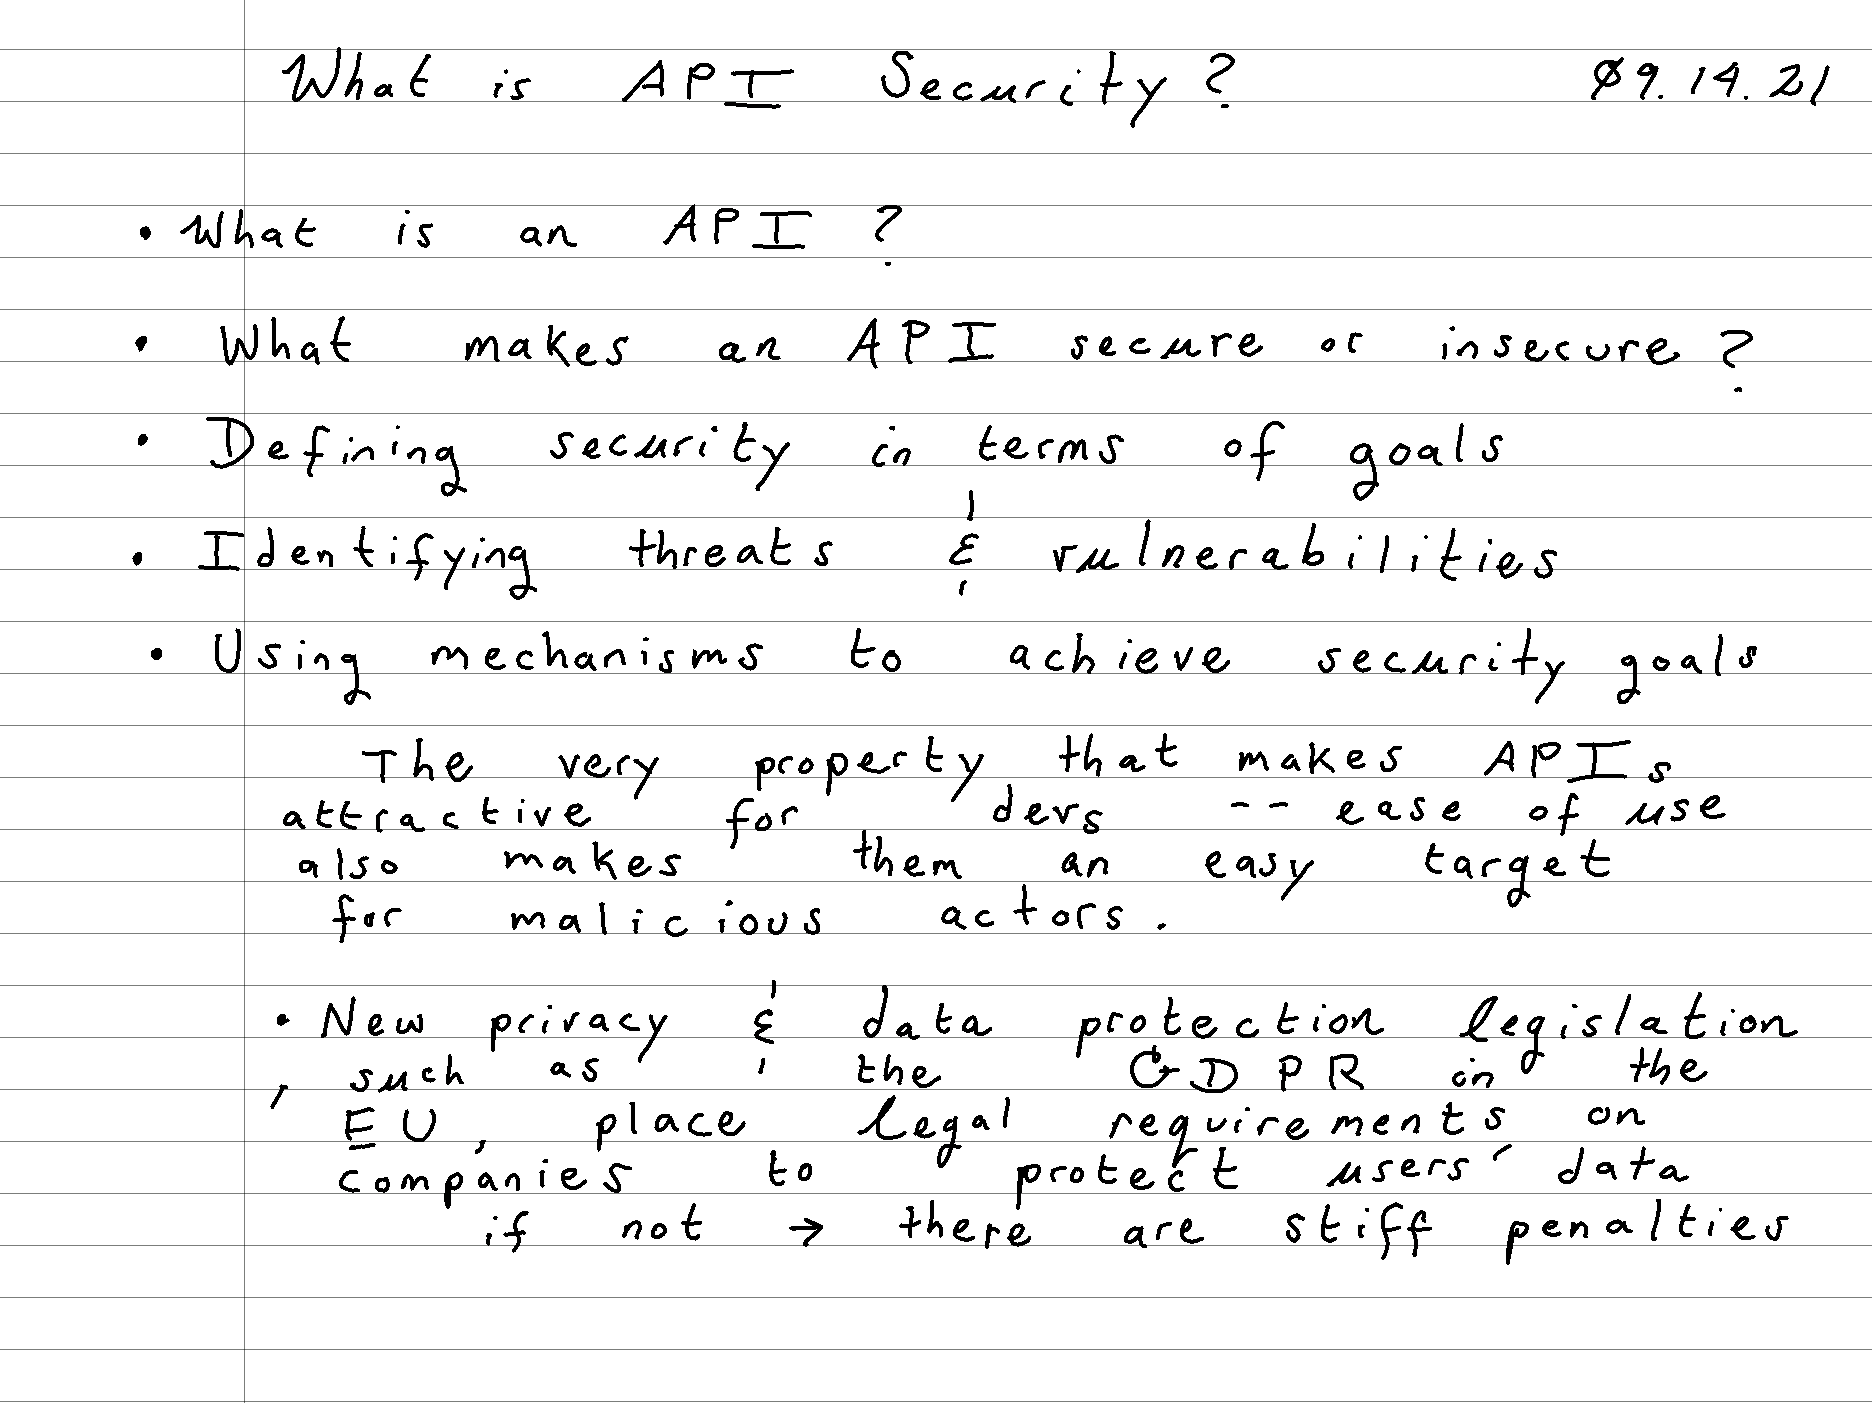 What is API Security? 09.14.21
• What is an API ?
• What makes an API secure or insecure ?
• Defining security in terms of goals
• Identifying threats & vulnerabilities
• Using mechanisms to achieve security goals
The very property that makes APIs
attractive for devs -- ease of use
also makes them an easy target
for malicious actors.
• New privacy & data protection legislation
, such as the GDPR in the
EU, place legal requirements on
companies to protect users' data
if not → there are stiff penalties